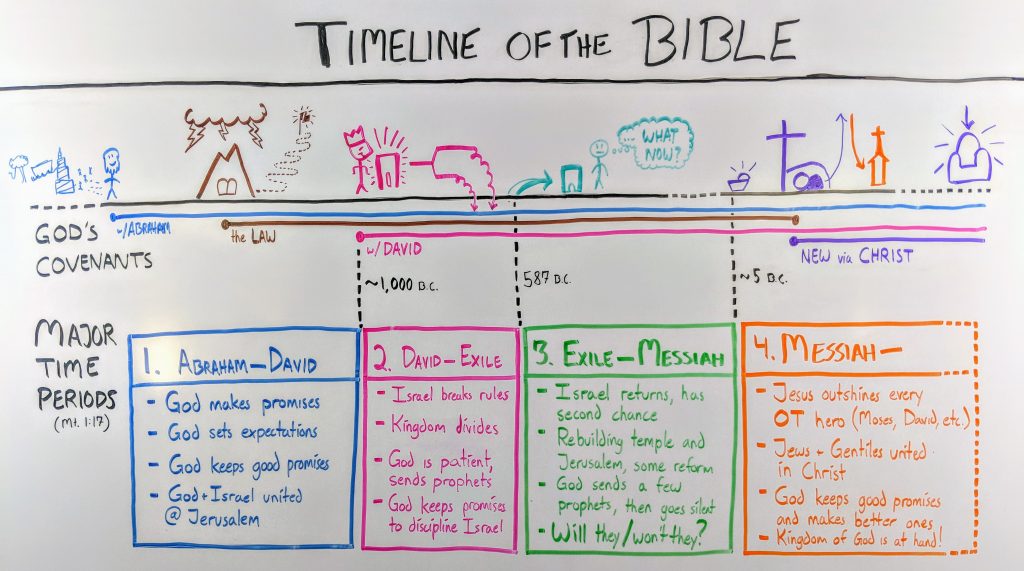 TIMELINE OF THE BIBLE
WHAT
NOW?
GOD'S
COVENANTS
w/ABRAHAM
the LAW
w/DAVID
NEW via CHRIST
~1,000 B.C.
587 B.C.
~5 B.C.
MAJOR
TIME
PERIODS
(Mt. 1:17)
1. ABRAHAM—DAVID
- God makes promises
- God sets expectations
- God keeps good promises
- God+Israel united
@ Jerusalem
2. DAVID—EXILE
- Israel breaks rules
- Kingdom divides
- God is patient,
sends prophets
- God keeps promises
to discipline Israel
3. EXILE—MESSIAH
- Israel returns, has
second chance
- Rebuilding temple and
Jerusalem, some reform
- God sends a few
prophets, then goes silent
- Will they/won't they?
4. MESSIAH—
- Jesus outshines every
OT hero (Moses, David, etc.)
- Jews + Gentiles united
in Christ
- God keeps good promises
and makes better ones
- Kingdom of God is at hand!